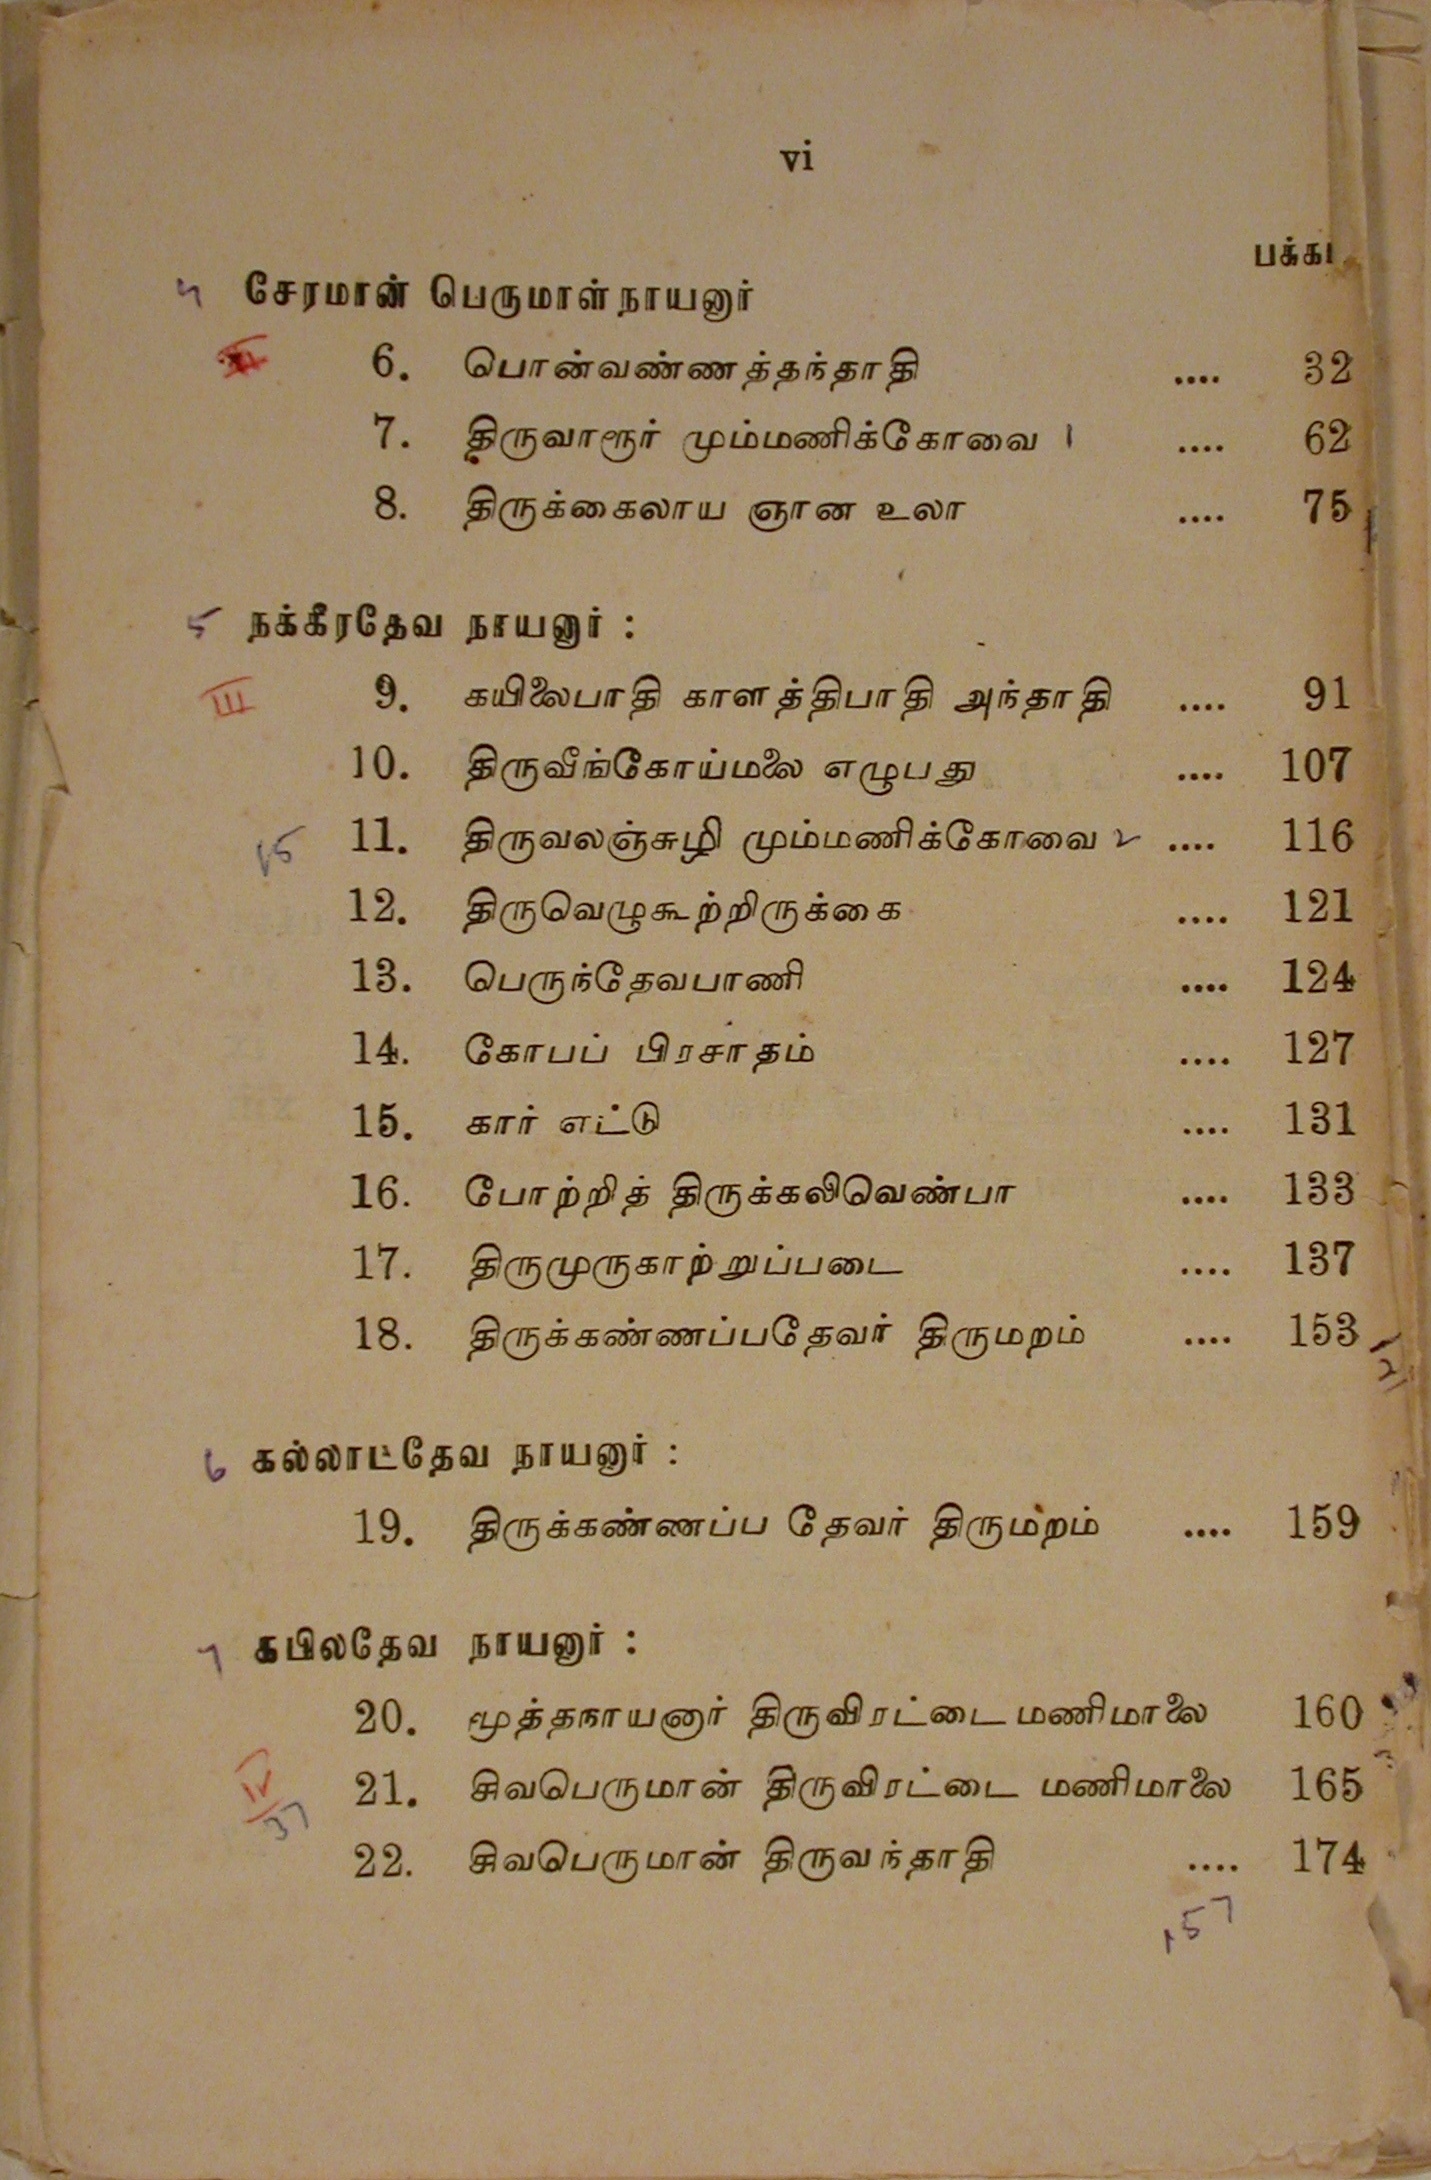 vi
பக்க
4 சேரமான் பெருமாள்நாயனார்
6. பொன்வண்ணத்தந்தாதி .... 32
7. திருவாரூர் மும்மணிக்கோவை 1 .... 62
8. திருக்கைலாய ஞான உலா .... 75
5 நக்கீரதேவ நாயனார் :
III 9. கயிலைபாதி காளத்திபாதி அந்தாதி .... 91
10. திருவீங்கோய்மலை எழுபது .... 107
15 11. திருவலஞ்சுழி மும்மணிக்கோவை 2 .... 116
12. திருவெழுகூற்றிருக்கை .... 121
13. பெருந்தேவபாணி .... 124
14. கோபப் பிரசாதம் .... 127
15. கார் எட்டு .... 131
16. போற்றித் திருக்கலிவெண்பா .... 133
17. திருமுருகாற்றுப்படை .... 137
18. திருக்கண்ணப்பதேவர் திருமறம் .... 153
6 கல்லாட்தேவ நாயனார் :
19. திருக்கண்ணப்ப தேவர் திருமறம் .... 159
7 கபிலதேவ நாயனார் :
20. மூத்தநாயனார் திருவிரட்டைமணிமாலை 160
IV 37 21. சிவபெருமான் திருவிரட்டை மணிமாலை 165
22. சிவபெருமான் திருவந்தாதி .... 174
157